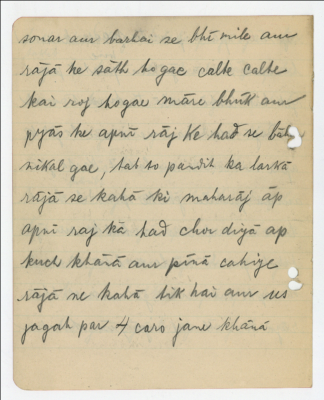 sonar aur barhai se bhī mile aur
rājā ke sāth hogae calte calte
kai roj hogae māre bhūk aur
pyās ke apnī rāj ke had se
nikal gae, tab to pandit ka larkā
rājā se kahā ki mahārāj āp
apnī raj kā had chor diyā ap
kuch khānā aur pīnā cahiye
rājā ne kahā tik hai aur us
jagah par 4 caro jane khānā